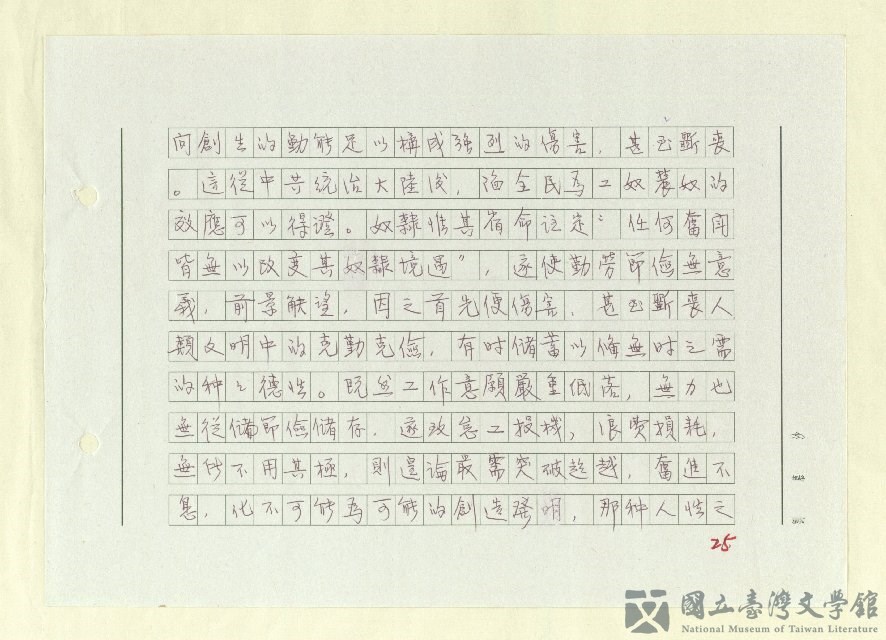 向創生的動能足以構成強烈的傷害，甚至斷喪
。這從中共統治大陸後，淪全民為工奴農奴的
效應可以得證。奴隸性其宿命註定“任何奮鬥
皆無以改變其奴隸境遇”，遂使勤勞節儉無意
義，前景缺望，因之首先便傷害，甚至斷喪人
類文明中的克勤克儉，有时儲蓄以備無时之需
的种种德性。既然工作意願嚴重低落，無力也
無從儲節儉儲存，遂致怠工投機，浪費損耗，
無所不用其極，則遑論最需突破超越，奮進不
息，化不可能為可能的創造發明，那种人性之
25
國立臺灣文學館
National Museum of Taiwan Literature